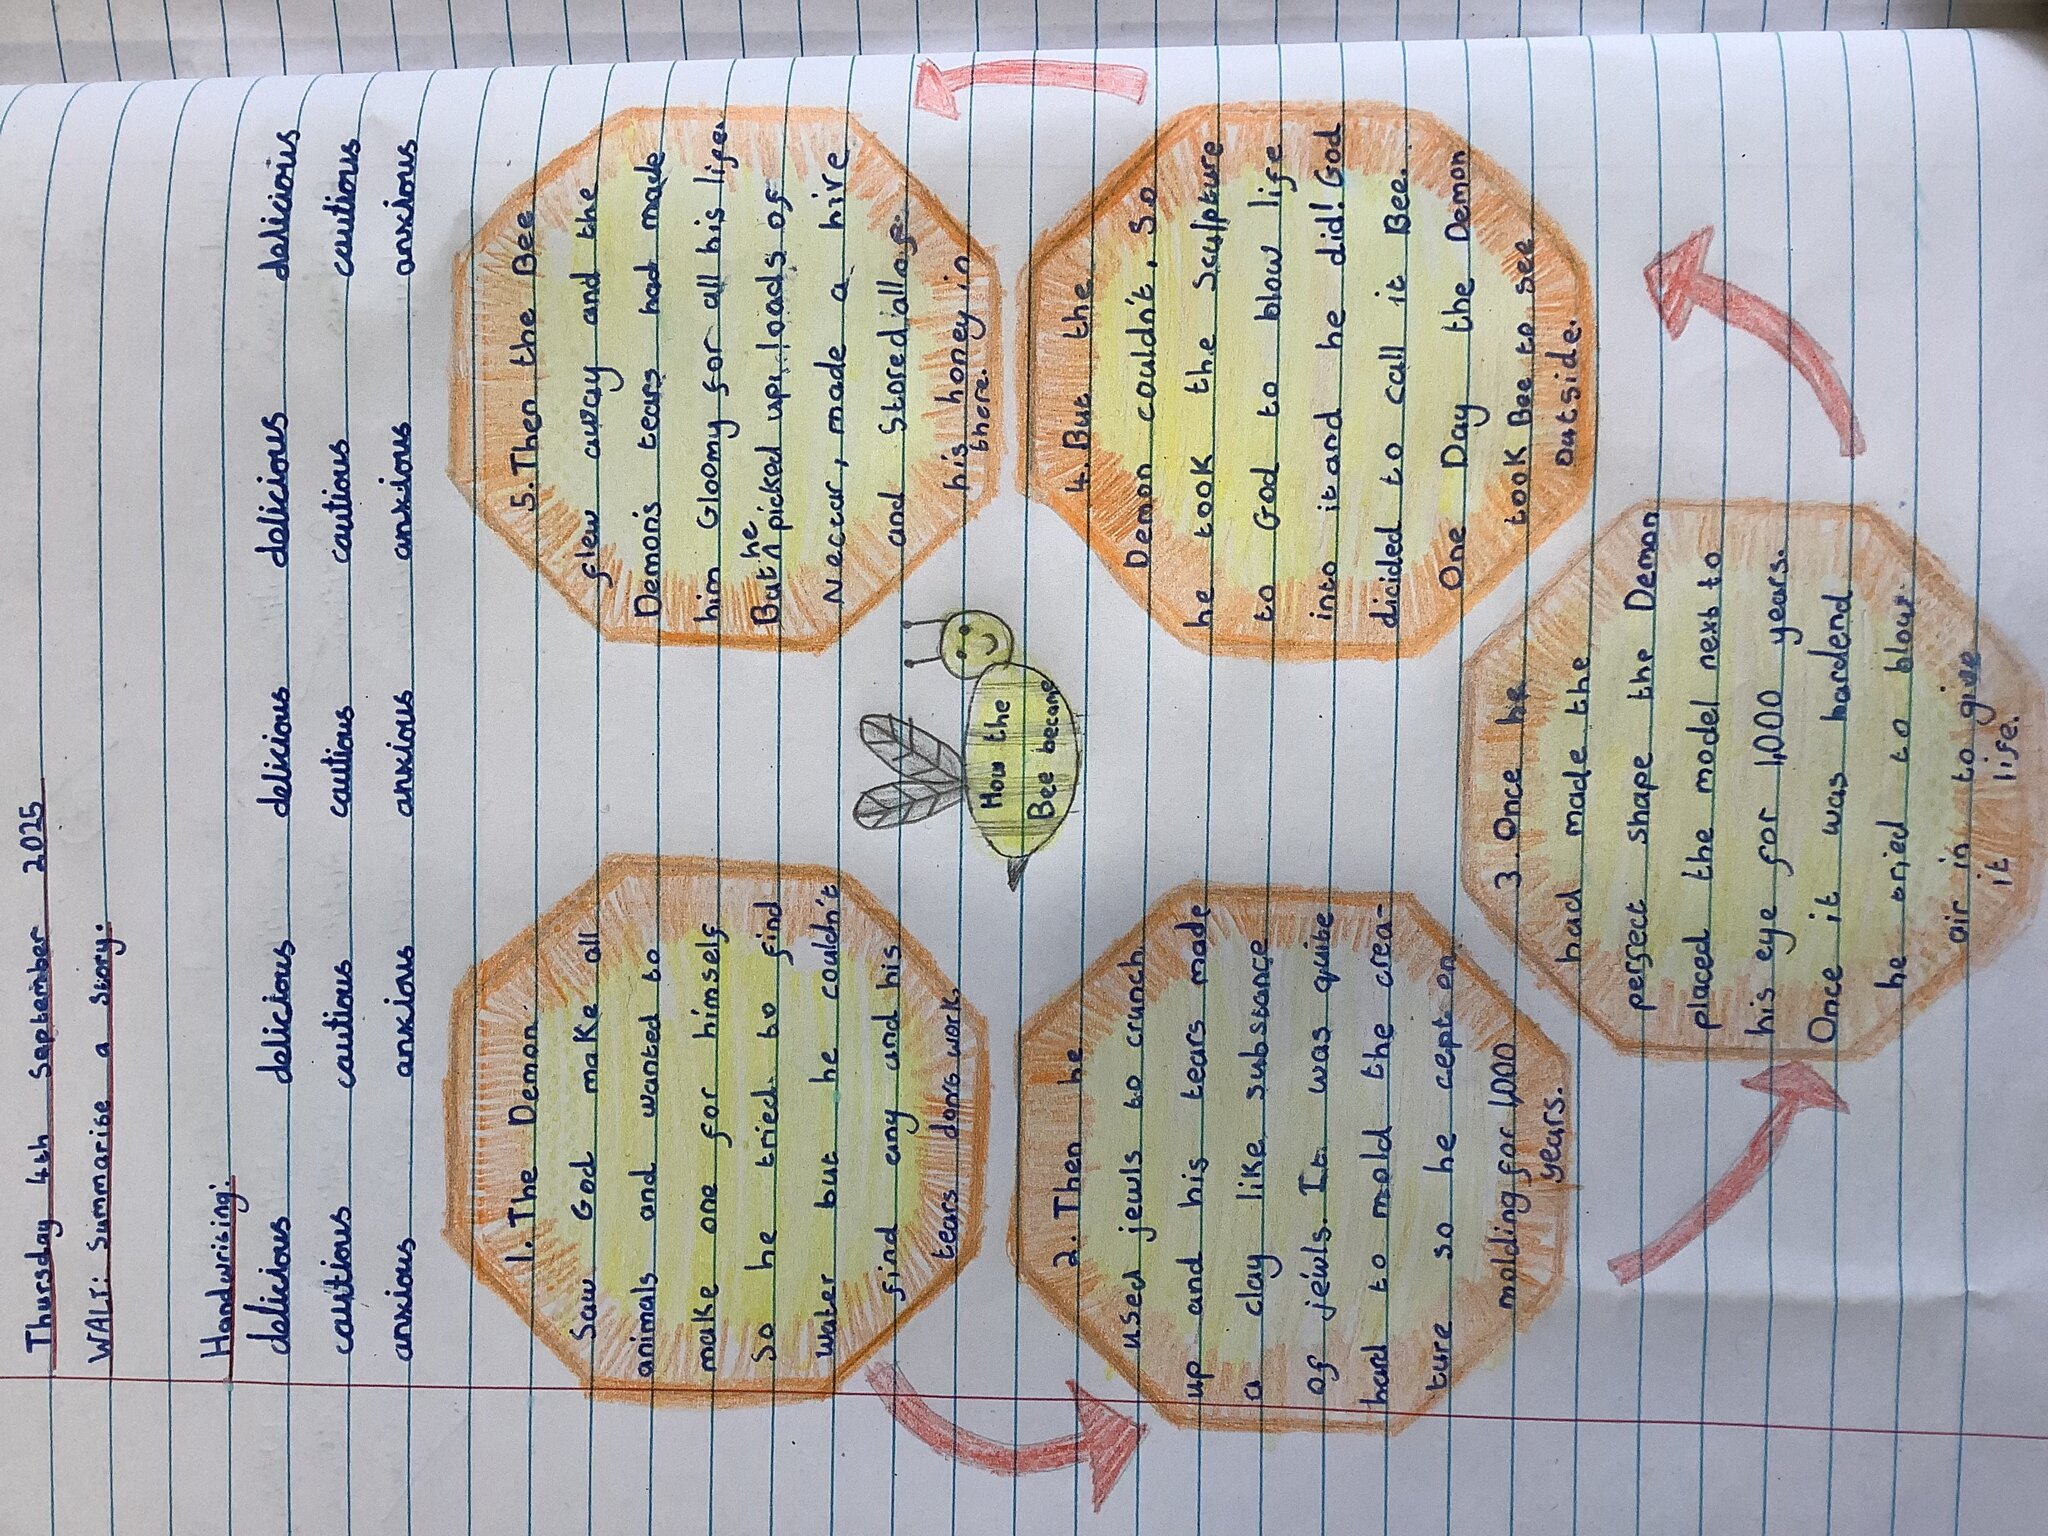 Thursday 4th September 2025
WALT: Summarise a story.
Handwriting:
delicious delicious delicious delicious delicious
cautious cautious cautious cautious cautious
anxious anxious anxious anxious anxious
1. The Demon
Saw God make all
animals and wanted to
make one for himself
So he tried to find
water but he couldn't
find any and his
tears don't work.
2. Then he
used jewls to crunch
up and his tears made
a clay like substance
of jewls. It was quite
hard to mold the crea-
ture so he cept on
molding for 1,000
years.
3. Once he
had made the
perfect shape the Demon
placed the model next to
his eye for 1,000 years.
Once it was hardend
he tried to blow
air in to give
it life.
4. But the
Demon couldn't, so
he took the sculpture
to God to blow life
into it and he did! God
dicided to call it Bee.
One Day the Demon
took Bee to see
outside.
5. Then the Bee
flew away and the
Demon's tears had made
him Gloomy for all his life.
But he picked up loads of
Nectar, made a hive
and Stored all of
his honey in
there.
How the
Bee became